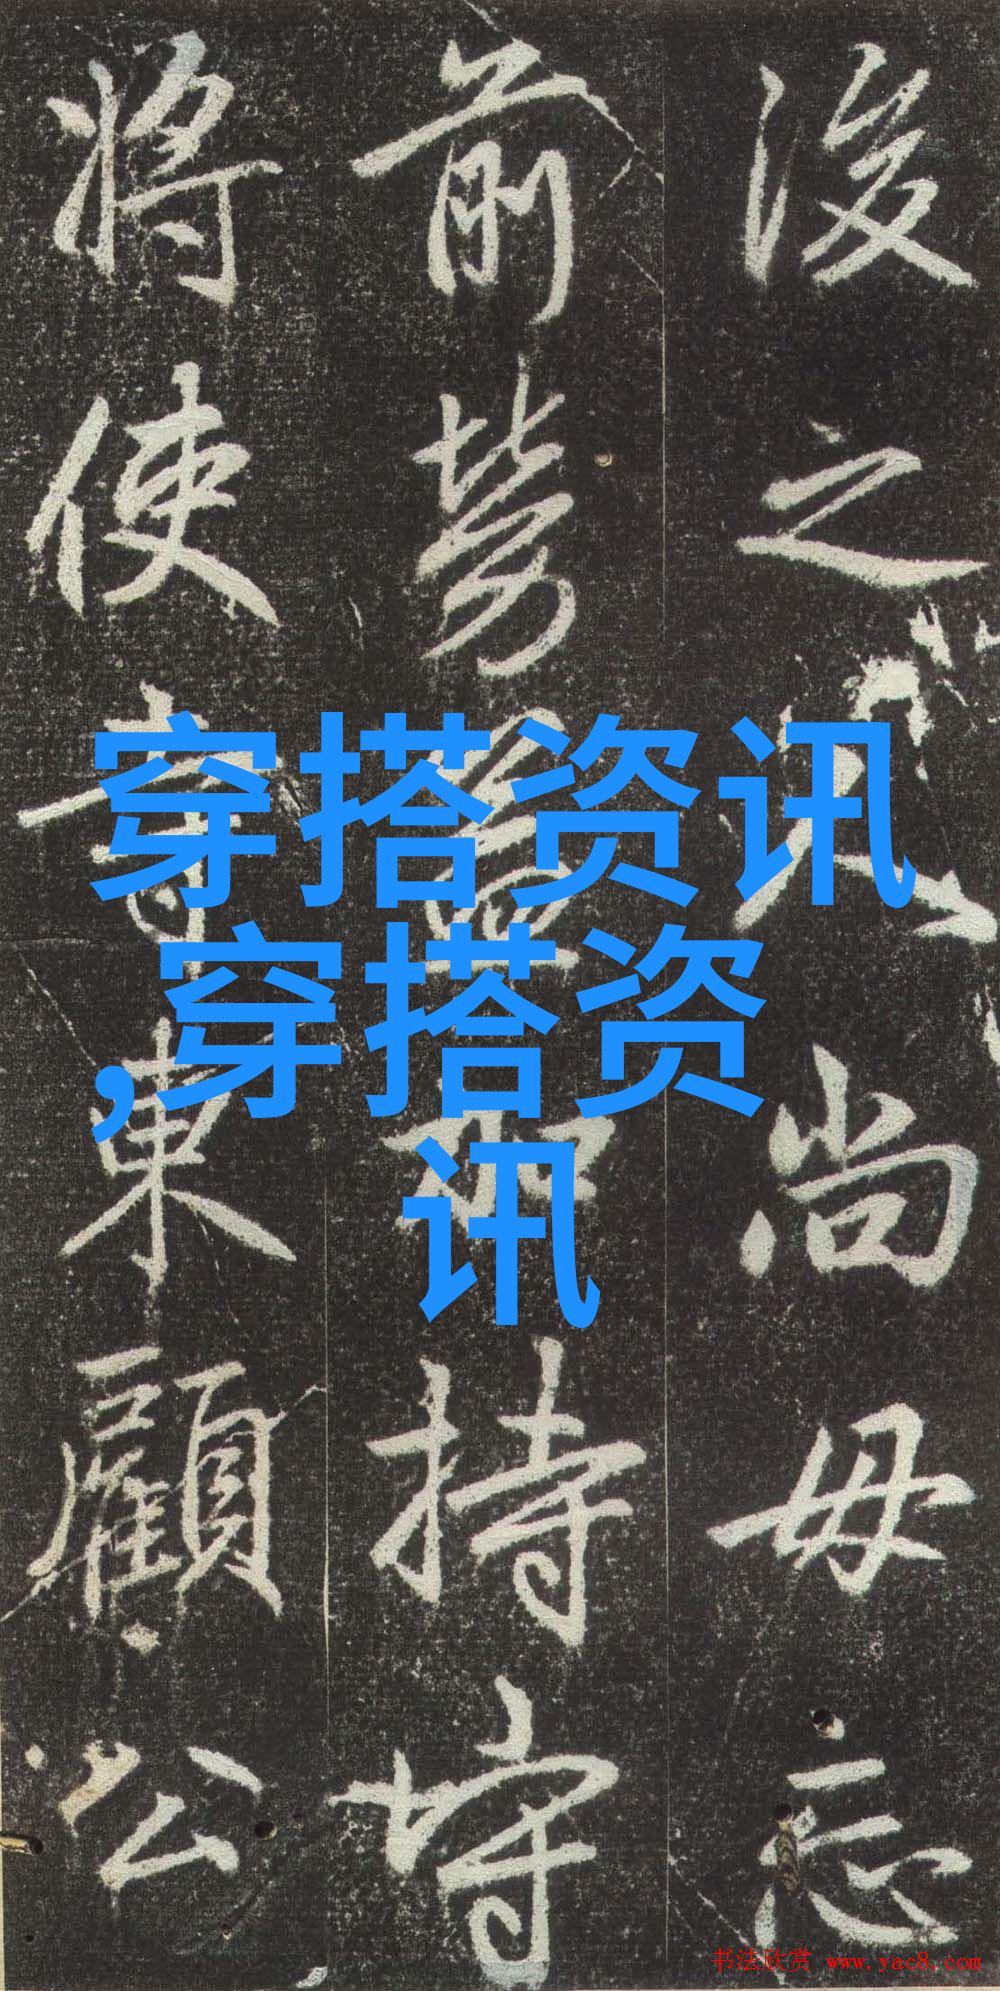 後之人尚毋忘
前勞益加持守
將使東顧公
穿搭资讯
,穿搭资
讯
书法欣赏 www.yac8.com